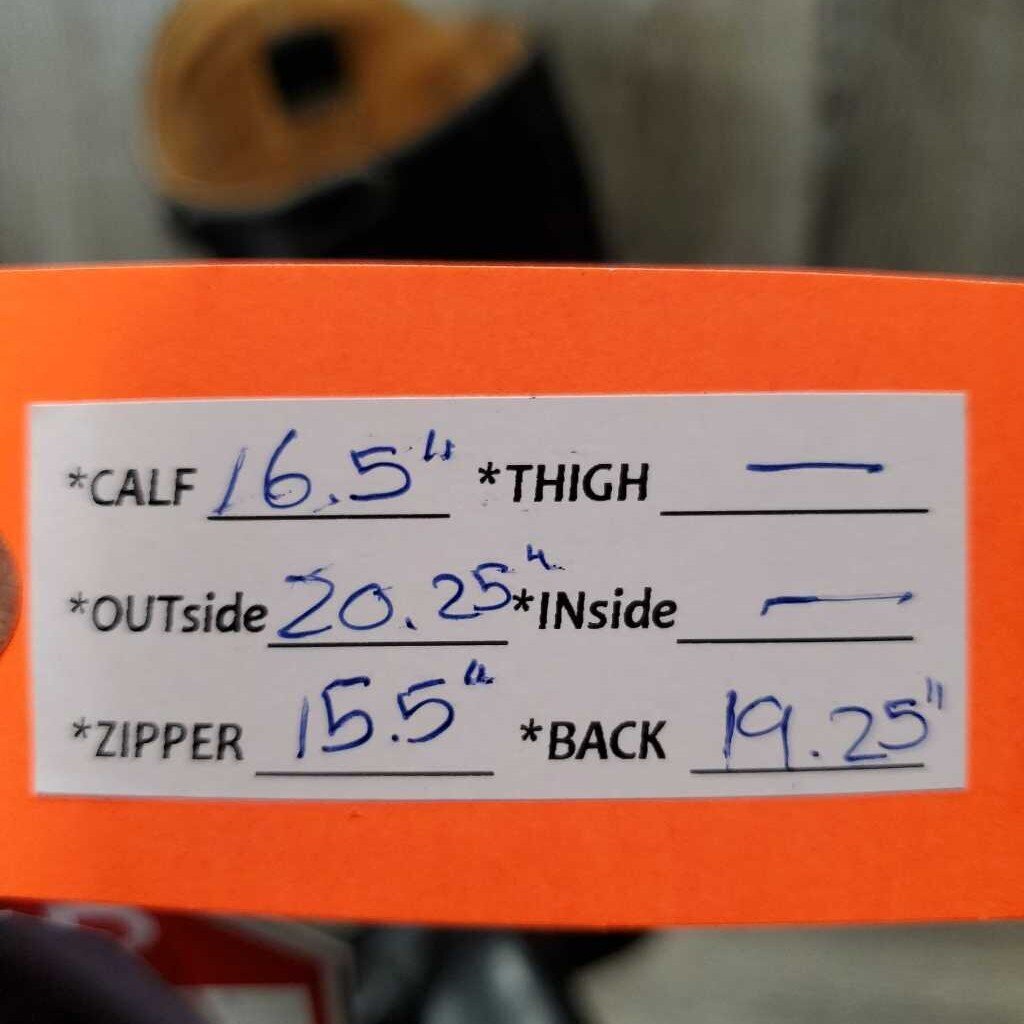 *CALF 16.5" *THIGH —
*OUTside 20.25" *INside —
*ZIPPER 15.5" *BACK 19.25"